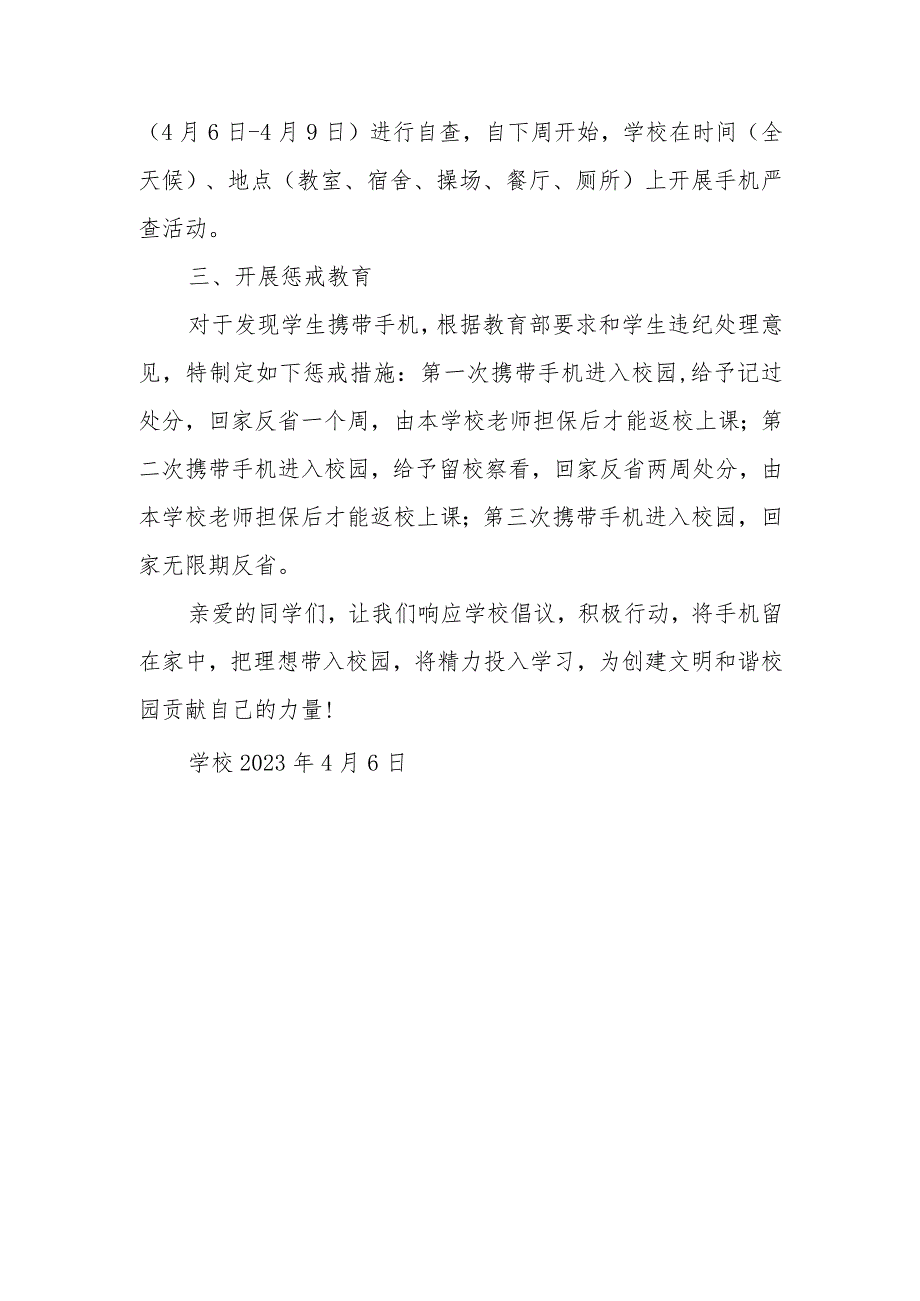 （4月6日-4月9日）进行自查，自下周开始，学校在时间（全
天候）、地点（教室、宿舍、操场、餐厅、厕所）上开展手机严
查活动。
三、开展惩戒教育
对于发现学生携带手机，根据教育部要求和学生违纪处理意
见，特制定如下惩戒措施：第一次携带手机进入校园,给予记过
处分，回家反省一个周，由本学校老师担保后才能返校上课；第
二次携带手机进入校园，给予留校察看，回家反省两周处分，由
本学校老师担保后才能返校上课；第三次携带手机进入校园，回
家无限期反省。
亲爱的同学们，让我们响应学校倡议，积极行动，将手机留
在家中，把理想带入校园，将精力投入学习，为创建文明和谐校
园贡献自己的力量!
学校2023年4月6日